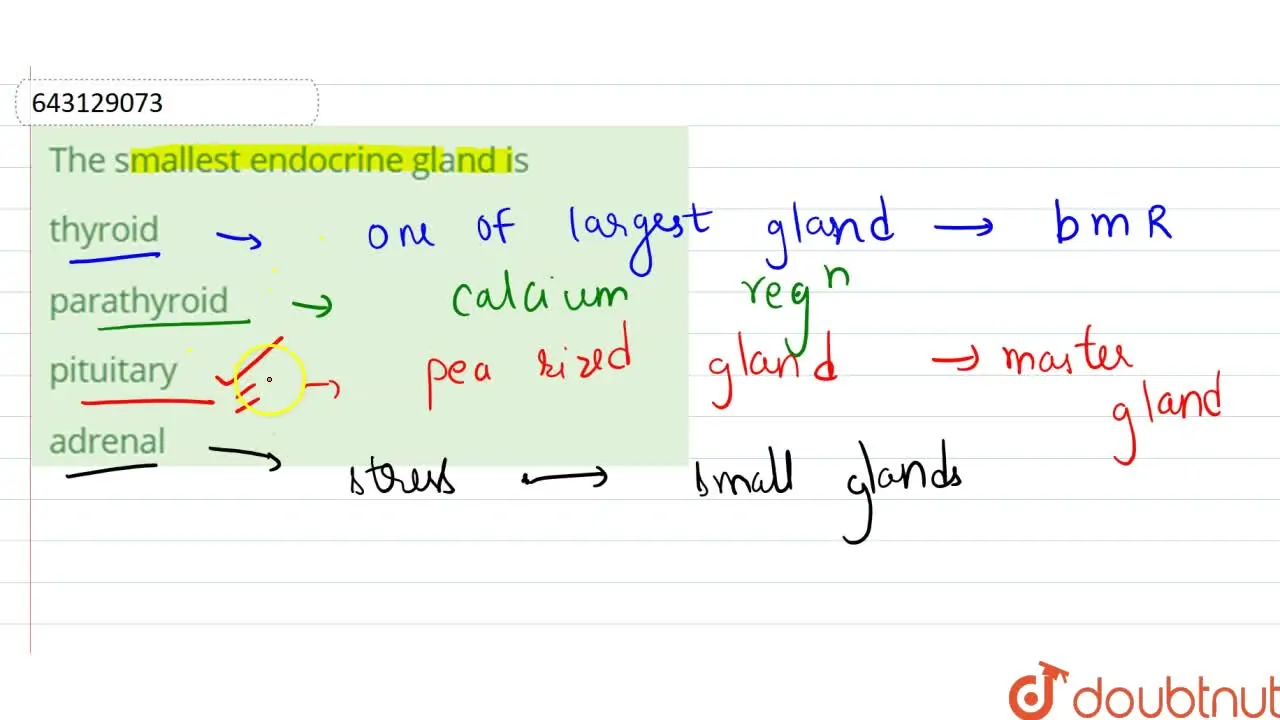 643129073
The smallest endocrine gland is
thyroid → one of largest gland → bmR
parathyroid → calcium regn
pituitary → pea sized gland → master gland
adrenal → stress → small glands
doubtnut